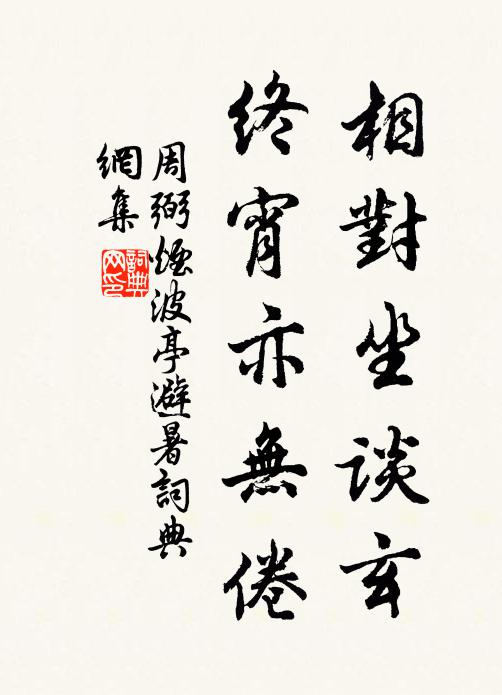 相對坐談玄
終宵亦無倦
周弼煙波亭避暑詞典
網集
詞典
网印